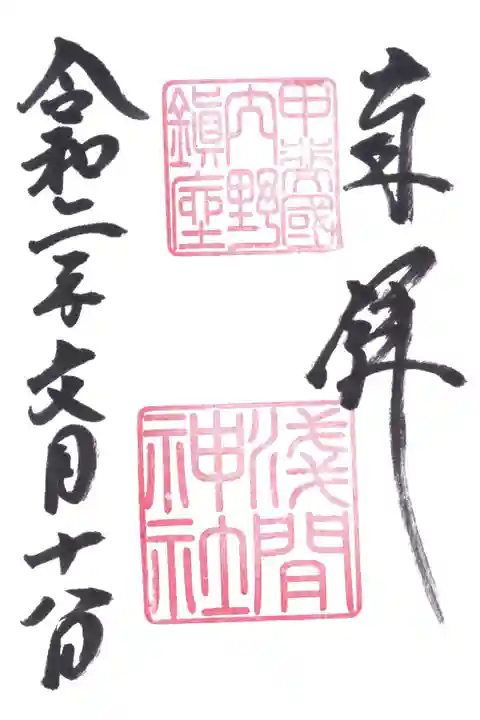 奉拝
甲斐國
内野
鎮座
浅間
神社
令和二年文月十八日